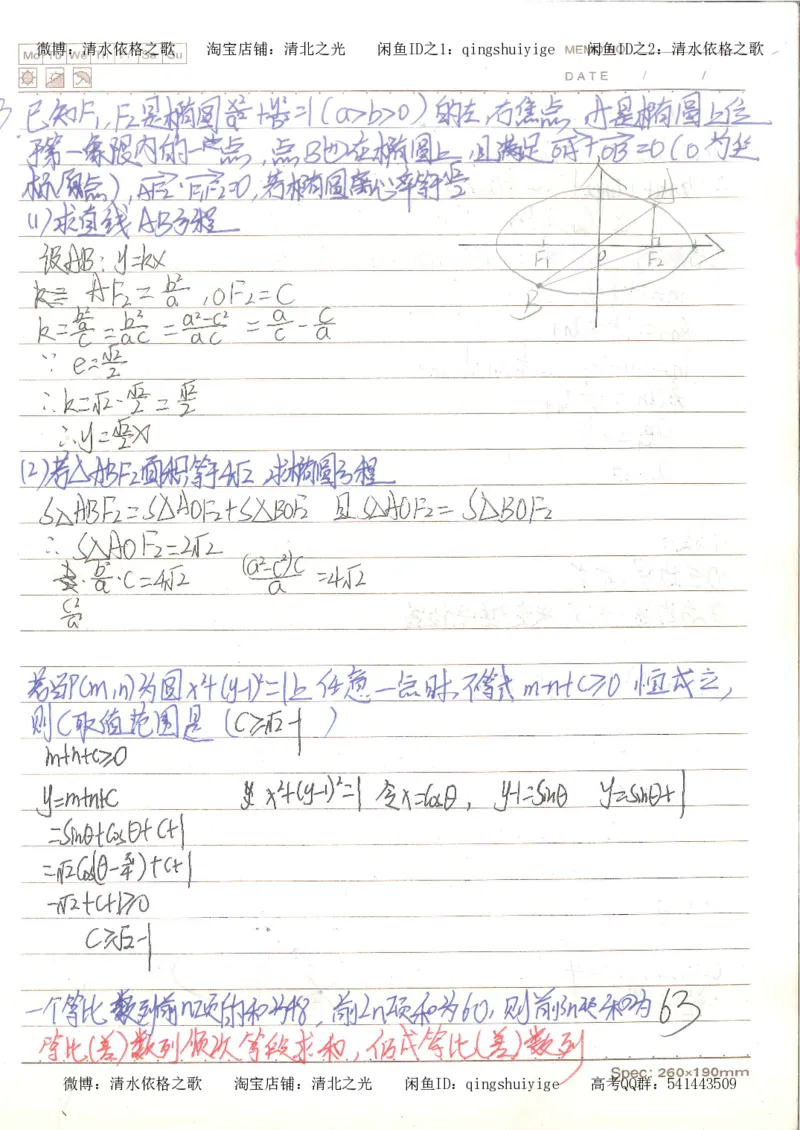 微博：清水依格之歌 淘宝店铺：清北之光 闲鱼ID之1：qingshuiyige 闲鱼ID之2：清水依格之歌
DATE / /
已知F₁,F₂是椭圆x²/a²+y²/b²=1(a>b>0)的左,右焦点,A是椭圆上位
于第一象限内的一点,点B也在椭圆上,且满足OA+OB=0(O为坐
标原点),AF₂·F₁F₂=0,若椭圆离心率等于√2/2
(1)求直线AB方程
设AB:y=kx
k= AF₂=b²/a ,OF₂=C
k=(b²/a)/c=b²/ac=(a²-c²)/ac=a/c-c/a
∵e=√2/2
∴k=√2-√2/2=√2/2
∴y=√2/2x
A
F₁ O F₂
B
(2)若△ABF₂面积等于4√2,求椭圆方程
S△ABF₂=S△AOF₂+S△BOF₂ 且S△AOF₂=S△BOF₂
∴S△AOF₂=2√2
b²/a·C=4√2 (a²-c²)c/a=4√2
c²/a²
若当P(m,n)为圆x²+(y-1)²=1上任意一点时,不等式m+n+c≥0恒成立,
则C取值范围是(C≥√2-1)
m+n+c≥0
y=m+n+c x²+(y-1)²=1 令x=cosθ, y-1=sinθ y=sinθ+1
=sinθ+cosθ+c+1
=√2cos(θ-π/4)+c+1
-√2+c+1≥0
C≥√2-1
一个等比数列前n项的和为48,前2n项和为60,则前3n项和为63
等比(差)数列顺次等段求和,仍成等比(差)数列
Spec: 260x190mm
微博：清水依格之歌 淘宝店铺：清北之光 闲鱼ID：qingshuiyige 高考QQ群：541443509